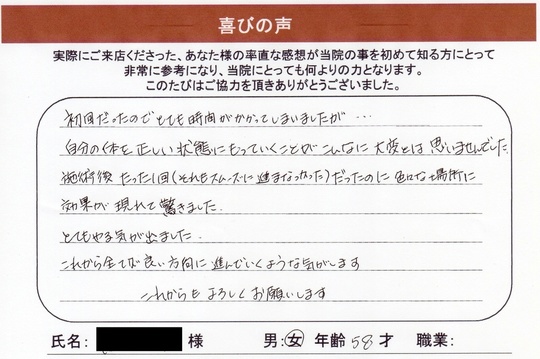 喜びの声
実際にご来店くださった、あなた様の率直な感想が当院の事を初めて知る方にとって
非常に参考になり、当院にとっても何よりの力となります。
このたびはご協力を頂きありがとうございました。
初回だったのでとても時間がかかってしまいましたが…
自分の体を正しい状態にもっていくことがこんなに大変とは思いませんでした
施術後たった1回(それもスムーズに進まなかった)だったのに色々な場所に
効果が現れて驚きました
とてもやる気が出ました
これから全てが良い方向に進んでいくような気がします
これからもよろしくお願いします
氏名: 様 男:女 年齢 58才 職業: